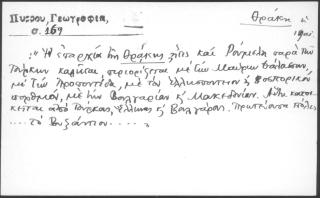 Πύρρου, Γεωγραφία,
σ. 169
Θράκη
"Ἡ ἐπαρχία τῆς Θράκης, ἥτις καὶ Ρούμελη παρὰ τῶν
Τούρκων καλεῖται περιορίζεται μὲ τὴν Μαύρην θάλασσαν,
μὲ τὴν Προποντίδα, μὲ τὸν Ἑλλήσποντον κ Βοσπορικὸν
πορθμόν, μὲ τὴν Βουλγαρίαν κ Μακεδονίαν. Αὕτη κατοι-
κεῖται ἀπὸ Τούρκους, Ἕλληνας κ Βουλγάρους. Πρωτεύουσα πόλις
.... τὸ Βυζάντιον .....